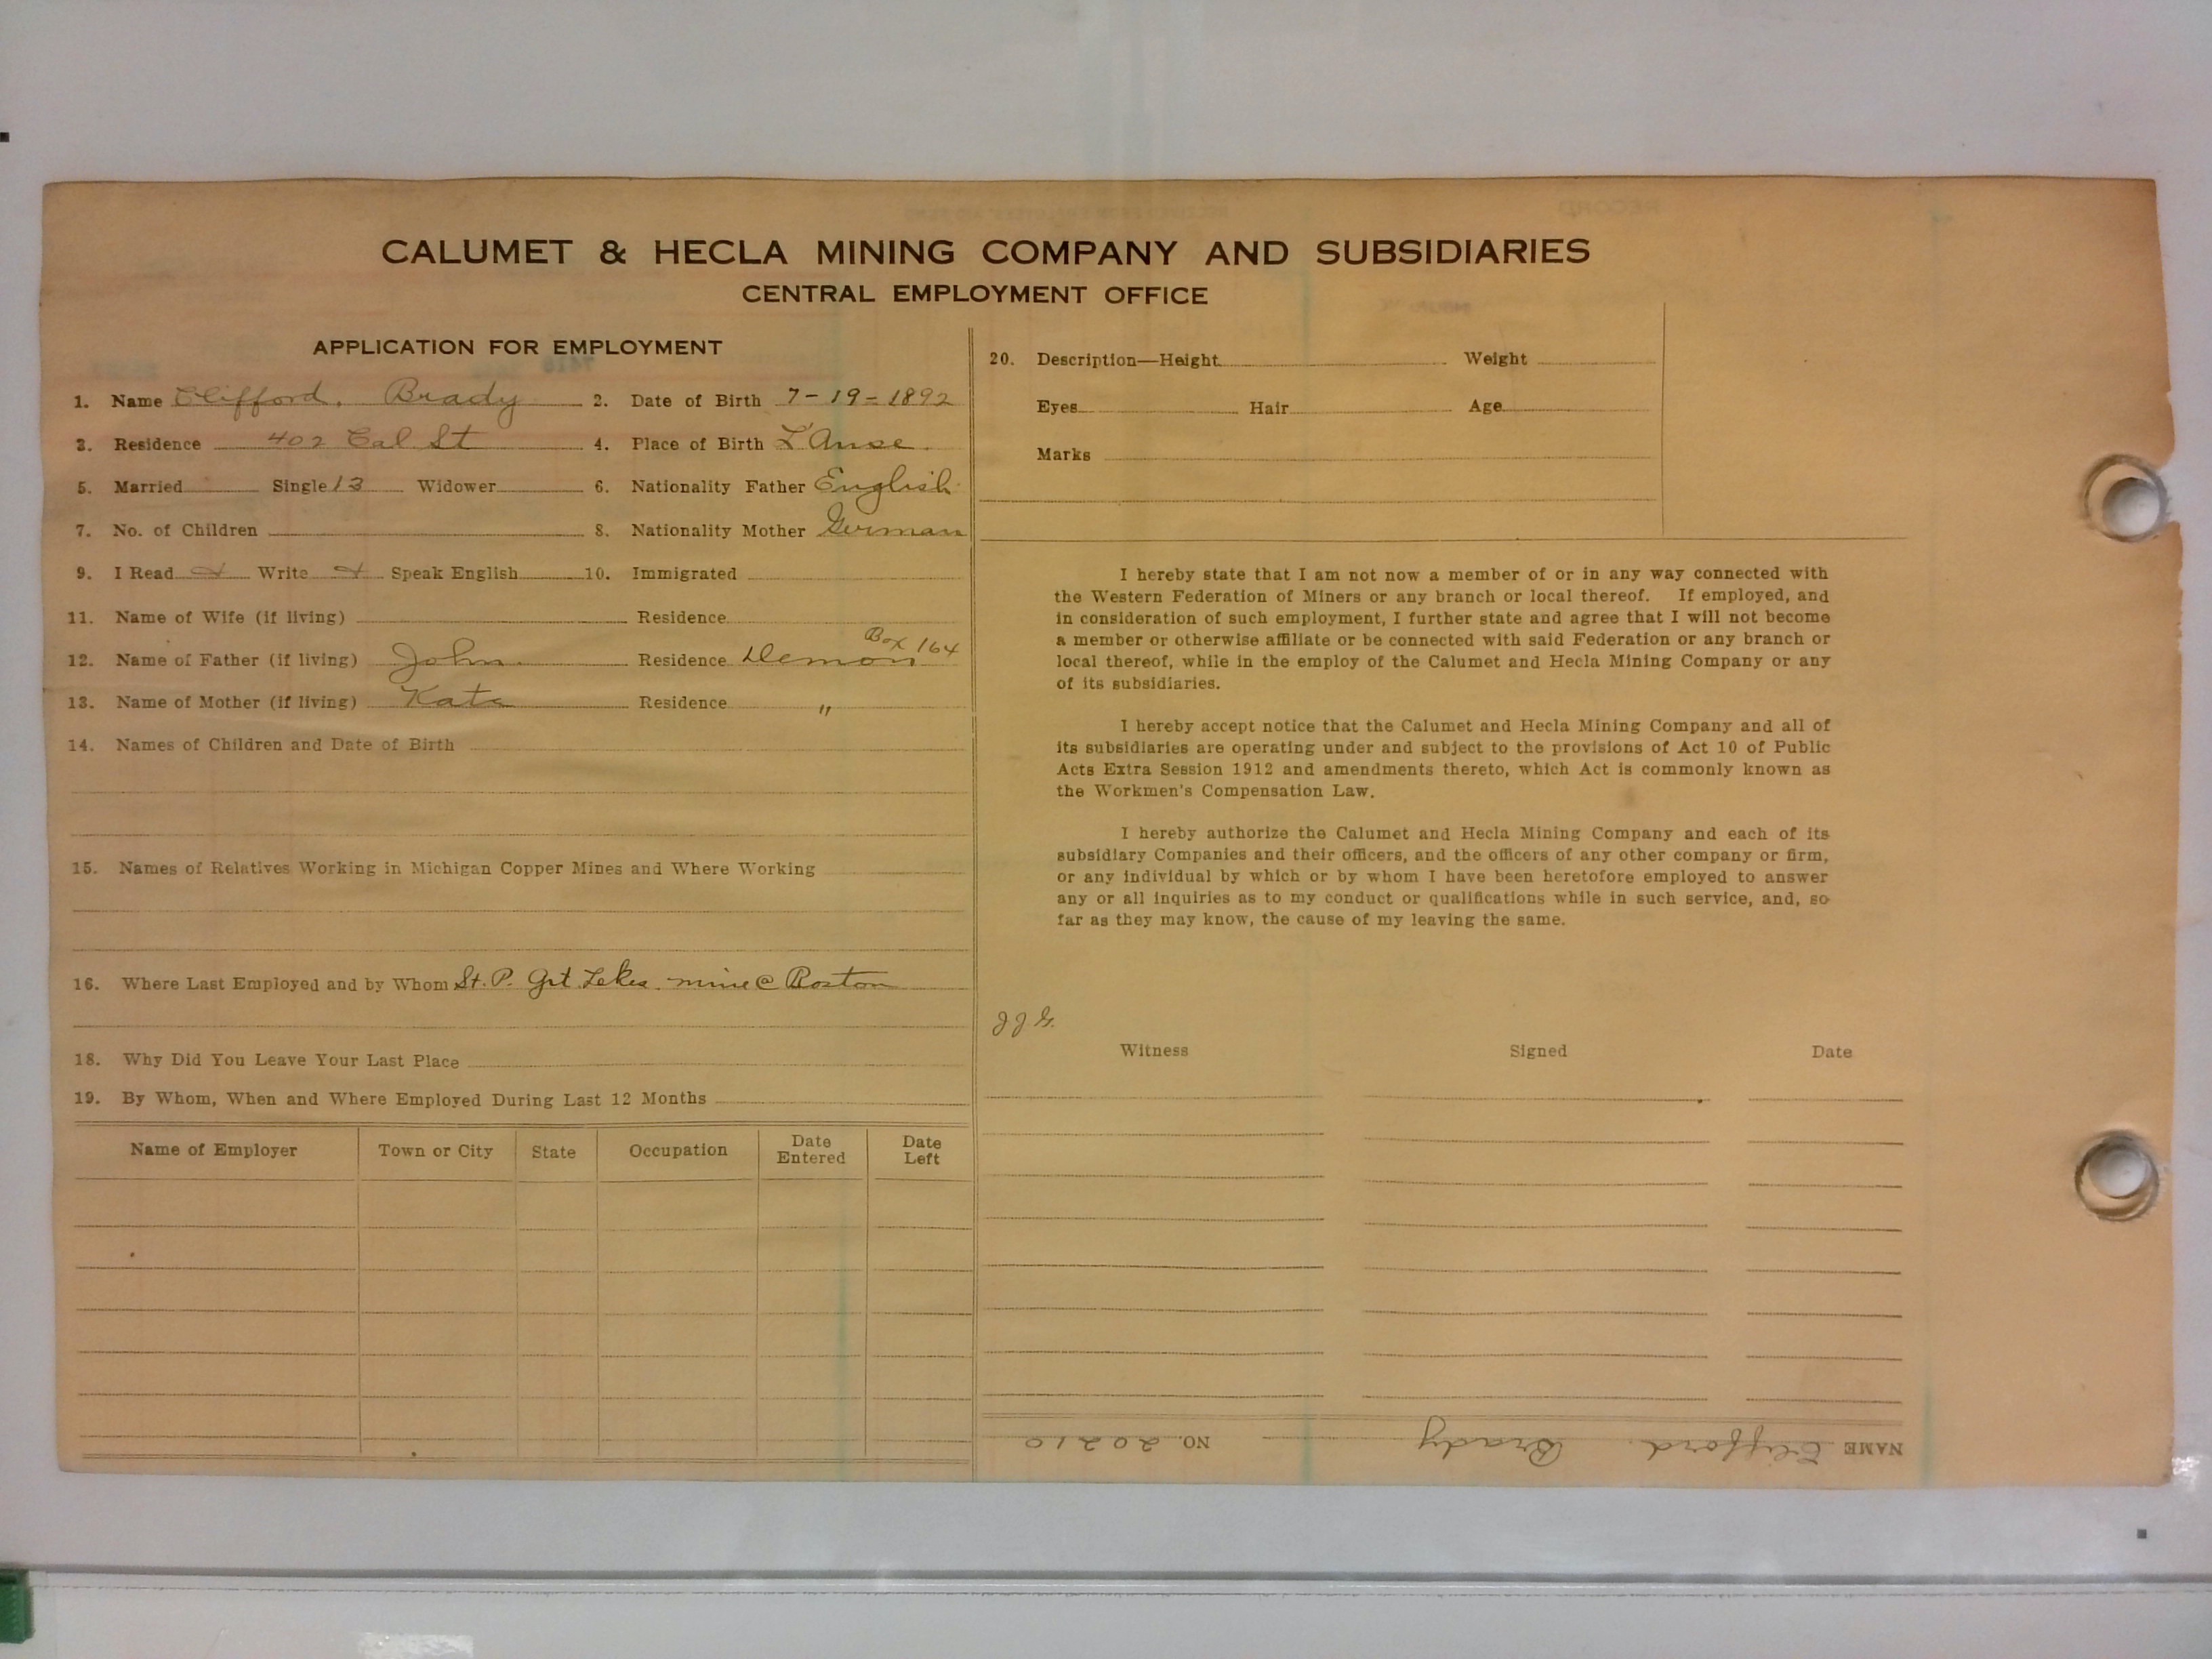 CALUMET & HECLA MINING COMPANY AND SUBSIDIARIES
CENTRAL EMPLOYMENT OFFICE
APPLICATION FOR EMPLOYMENT
1. Name Clifford, Brady 2. Date of Birth 7-19-1892
3. Residence 402 Cal St 4. Place of Birth L'Anse
5. Married Single 13 Widower 6. Nationality Father English
7. No. of Children 8. Nationality Mother German
9. I Read Write Speak English 10. Immigrated
11. Name of Wife (if living) Residence
12. Name of Father (if living) John Residence Demon Box 164
13. Name of Mother (if living) Kate Residence "
14. Names of Children and Date of Birth
15. Names of Relatives Working in Michigan Copper Mines and Where Working
16. Where Last Employed and by Whom St. P. Grt Lekes mine @ Boston
18. Why Did You Leave Your Last Place
19. By Whom, When and Where Employed During Last 12 Months
Name of Employer Town or City State Occupation Date Entered Date Left
20. Description—Height Weight
Eyes Hair Age
Marks
I hereby state that I am not now a member of or in any way connected with
the Western Federation of Miners or any branch or local thereof. If employed, and
in consideration of such employment, I further state and agree that I will not become
a member or otherwise affiliate or be connected with said Federation or any branch or
local thereof, while in the employ of the Calumet and Hecla Mining Company or any
of its subsidiaries.
I hereby accept notice that the Calumet and Hecla Mining Company and all of
its subsidiaries are operating under and subject to the provisions of Act 10 of Public
Acts Extra Session 1912 and amendments thereto, which Act is commonly known as
the Workmen's Compensation Law.
I hereby authorize the Calumet and Hecla Mining Company and each of its
subsidiary Companies and their officers, and the officers of any other company or firm,
or any individual by which or by whom I have been heretofore employed to answer
any or all inquiries as to my conduct or qualifications while in such service, and, so
far as they may know, the cause of my leaving the same.
JJG.
Witness Signed Date
NAME Clifford. Brady NO. 20210